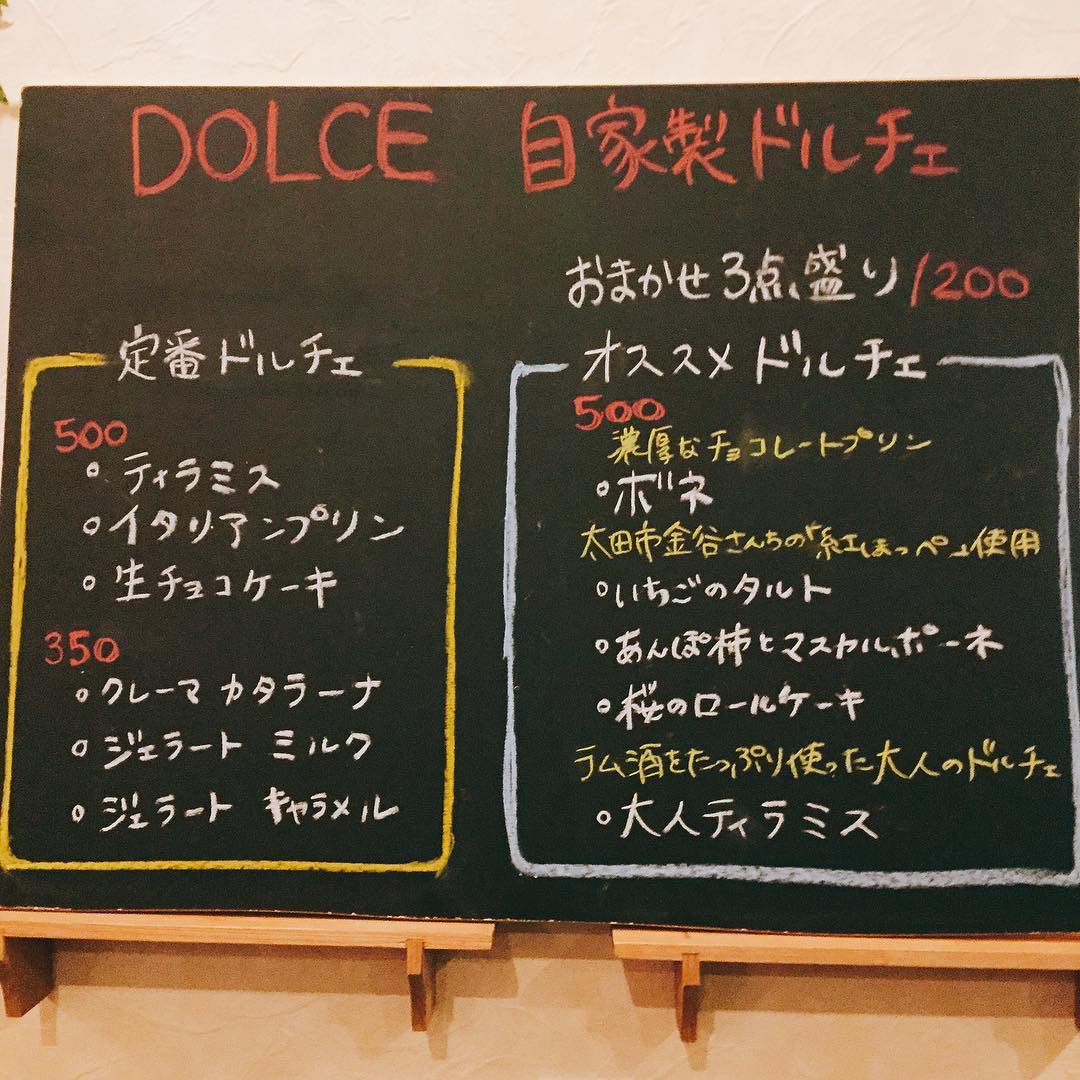 DOLCE 自家製ドルチェ
おまかせ3点盛り 1200
定番ドルチェ
500
○ティラミス
○イタリアンプリン
○生チョコケーキ
350
○クレーマ カタラーナ
○ジェラート ミルク
○ジェラート キャラメル
オススメドルチェ
500
濃厚なチョコレートプリン
○ボネ
太田市金谷さんちの「紅ほっぺ」使用
○いちごのタルト
○あんぽ柿とマスカルポーネ
○桜のロールケーキ
ラム酒をたっぷり使った大人のドルチェ
○大人ティラミス